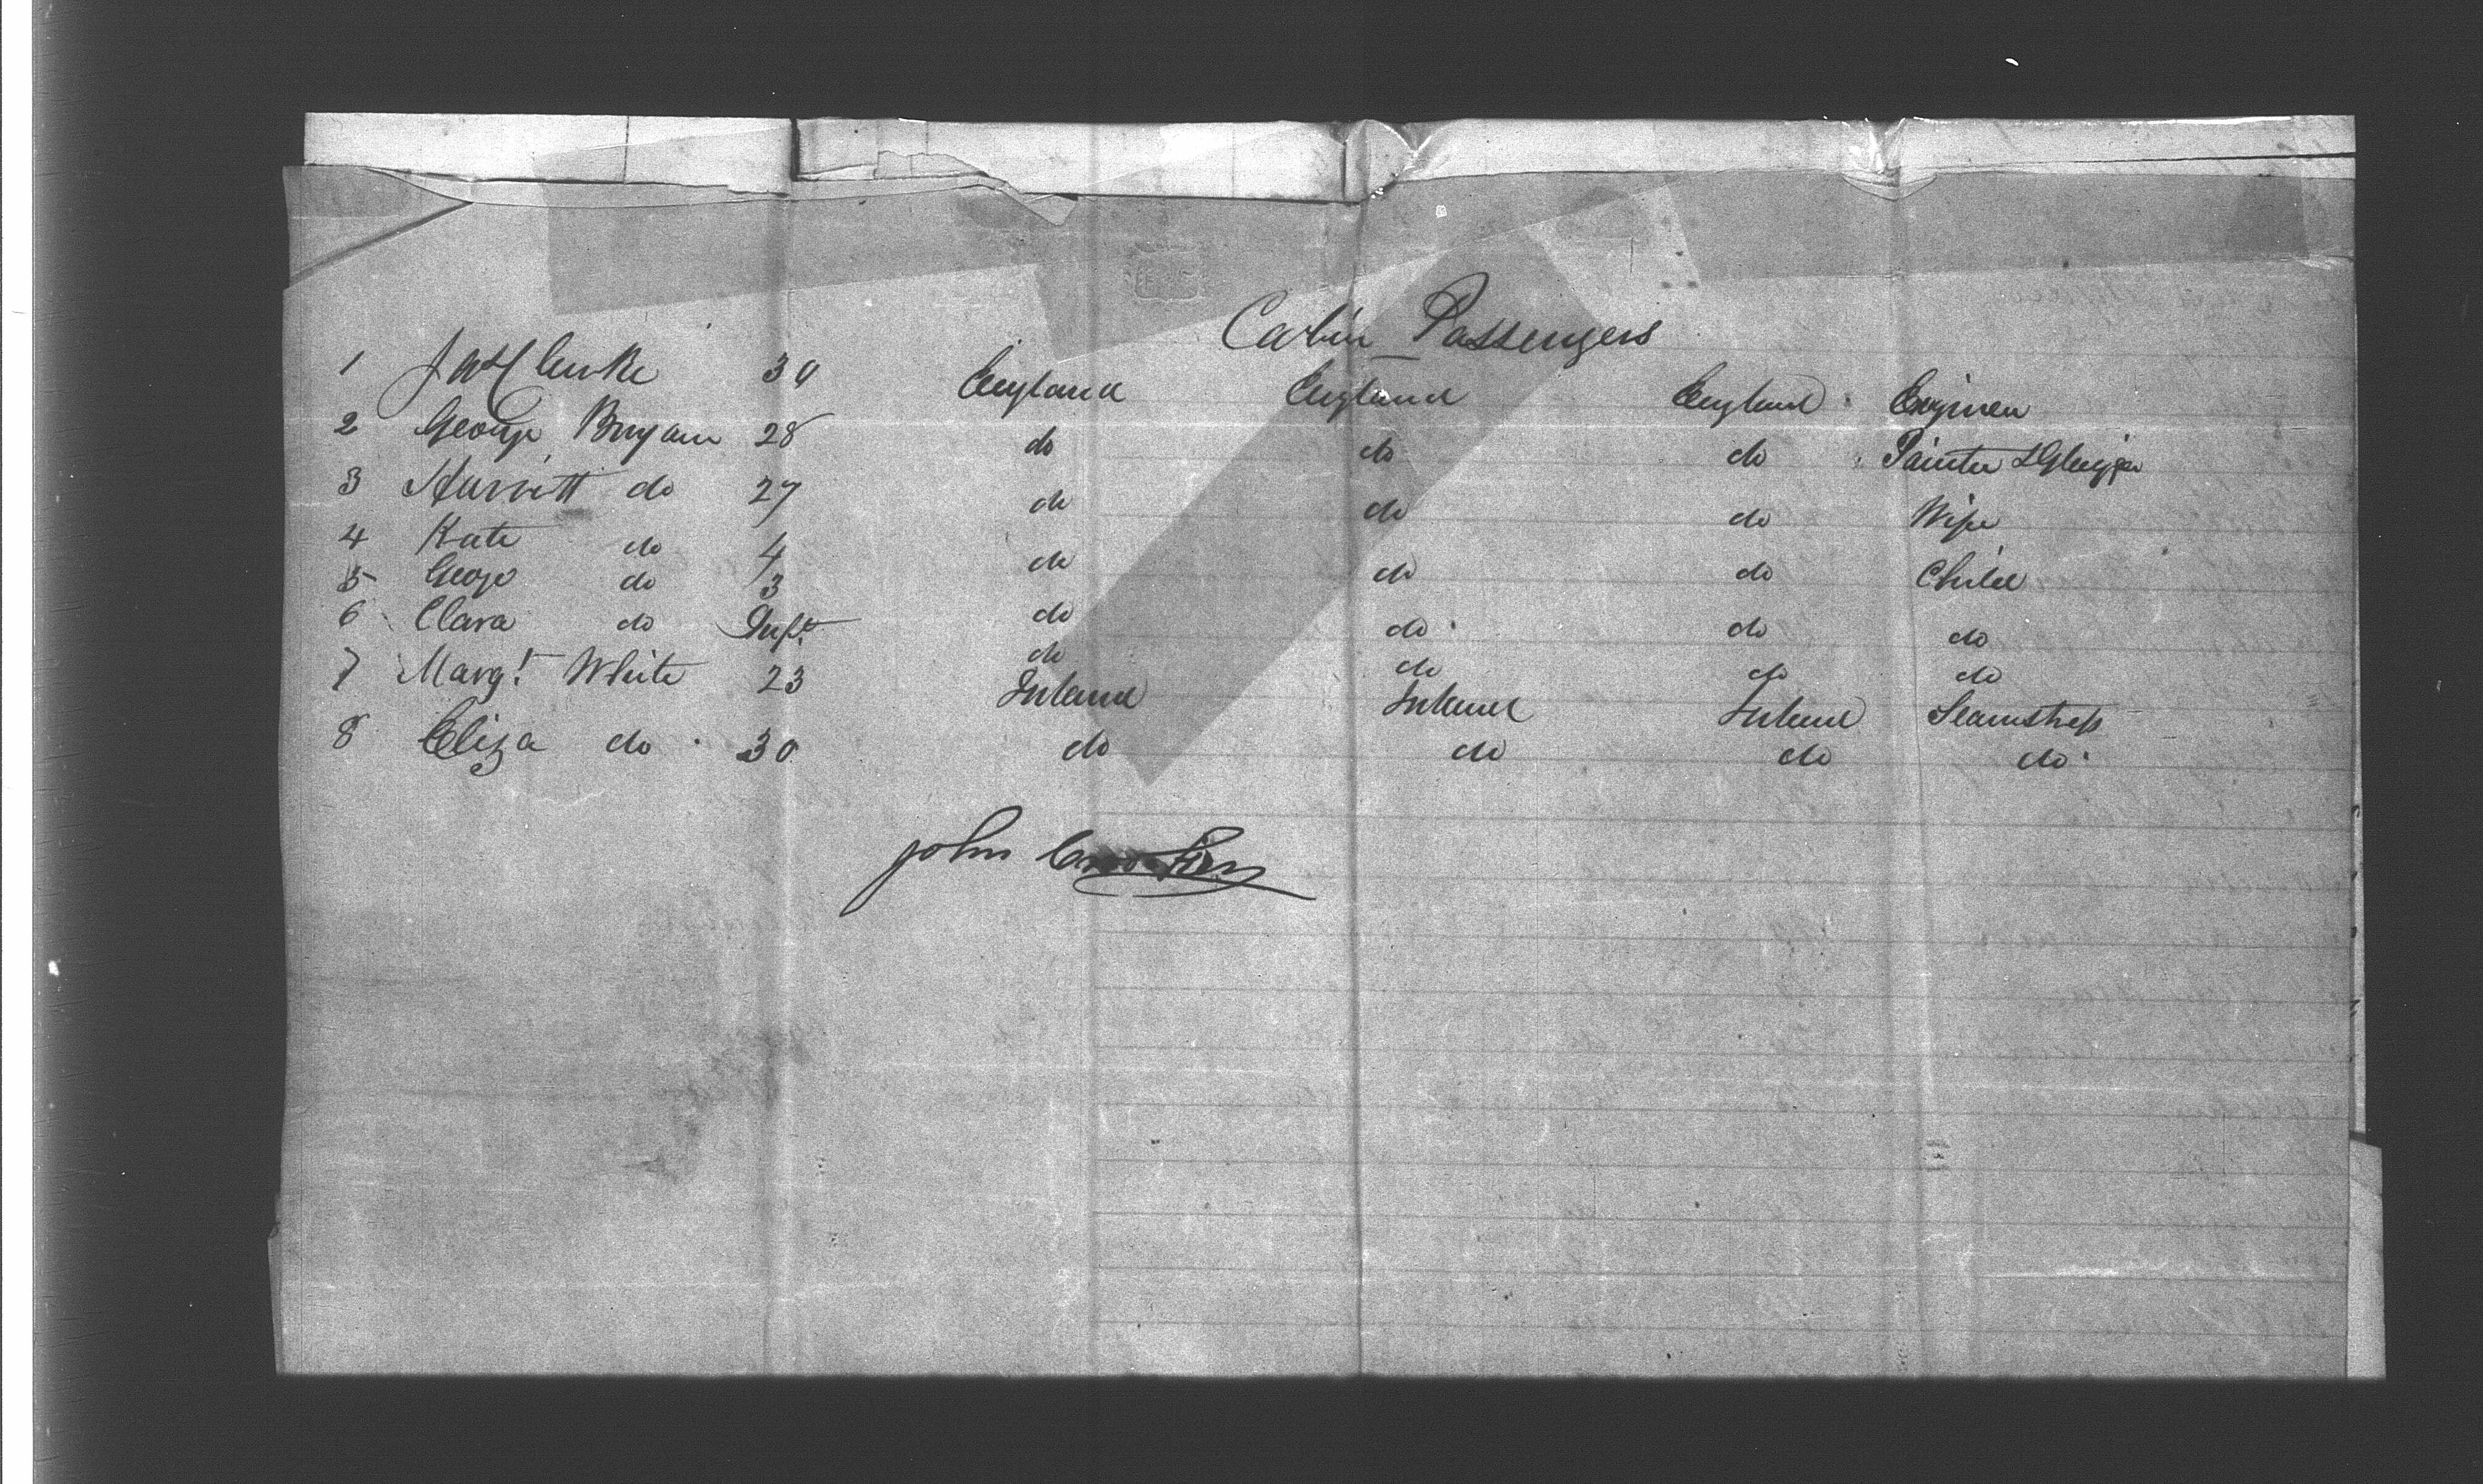 Cabin Passengers
1 Jas Clarke 30 England England England Engineer
2 George Bryam 28 do do do Painter & Glazier
3 Harriett do 27 do do do Wife
4 Kate do 4 do do do Child
5 Geoge do 3 do do do do
6 Clara do Inft do do do do
7 Margt White 23 Ireland Ireland Ireland Seamstress
8 Eliza do 30 do do do do
John